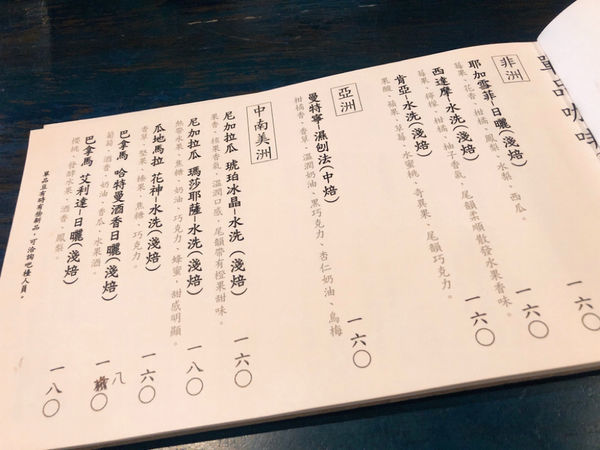 單品咖啡
非洲
耶加雪菲-日曬(淺焙)
一六〇
莓果、花香、柑橘、鳳梨、水梨、西瓜。
西達摩-水洗(淺焙)
一六〇
莓果、檸檬、柑橘、柚子香氣、尾韻柔順散發水果香味。
肯亞-水洗(淺焙)
一六〇
果酸、蘋果、草莓、水蜜桃、奇異果、尾韻巧克力。
亞洲
曼特寧-濕刨法(中焙)
一六〇
柑橘、香草、溫潤奶油、黑巧克力、杏仁奶油、烏梅
中南美洲
尼加拉瓜 琥珀冰晶-水洗 (淺焙)
一六〇
果香、榛果香氣、溫潤口感、尾韻帶有橙果甜味。
尼加拉瓜 瑪莎耶薩-水洗(淺焙)
一八〇
熱帶水果、焦糖、奶油、巧克力、蜂蜜、甜感明顯。
瓜地馬拉 花神-水洗(淺焙)
一六〇
香草、堅果、榛果、焦糖、巧克力。
巴拿馬 哈特曼酒香日曬(淺焙)
一八〇
葡萄、酒香、奶油、香瓜、水果酒。
巴拿馬 艾利達-日曬(淺焙)
一八〇
櫻桃、發酵水果、酒香、鳳梨。
單品豆有時有換新品，可洽詢吧檯人員。